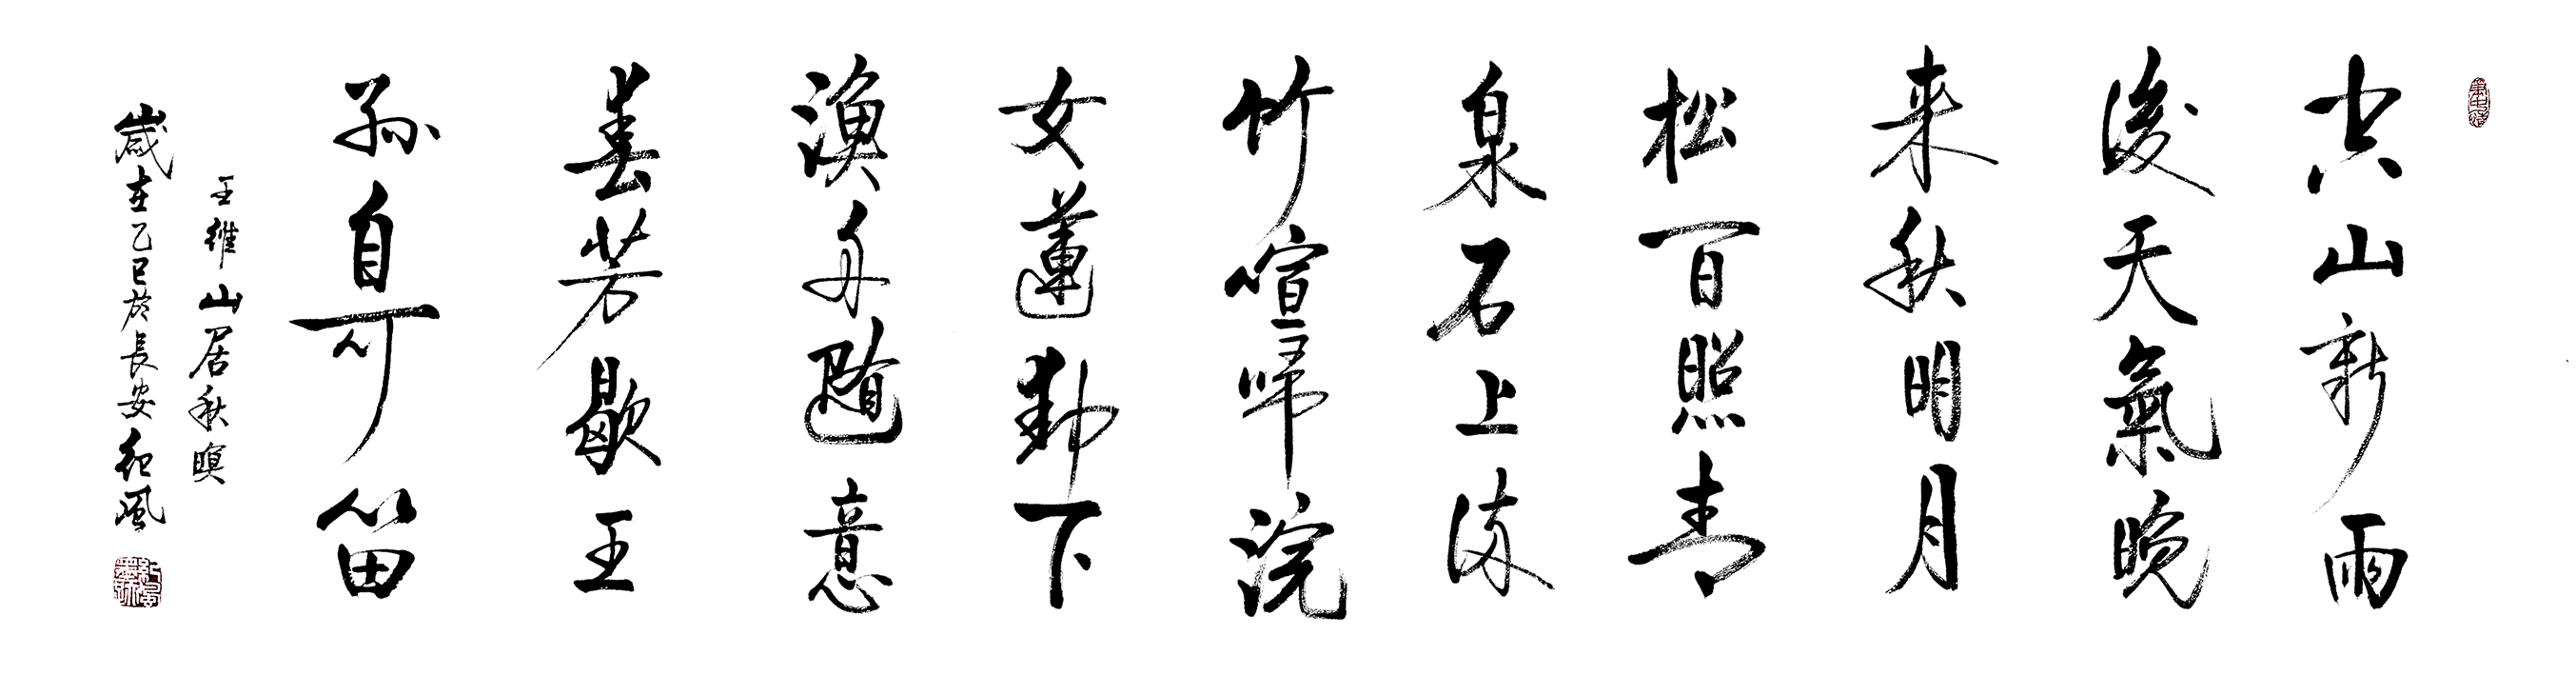 空山新雨
後天氣晚
来秋明月
松間照青
泉石上流
竹喧歸浣
女蓮動下
漁舟隨意
春芳歇王
孫自可留
王維山居秋暝
歲在乙巳於長安風